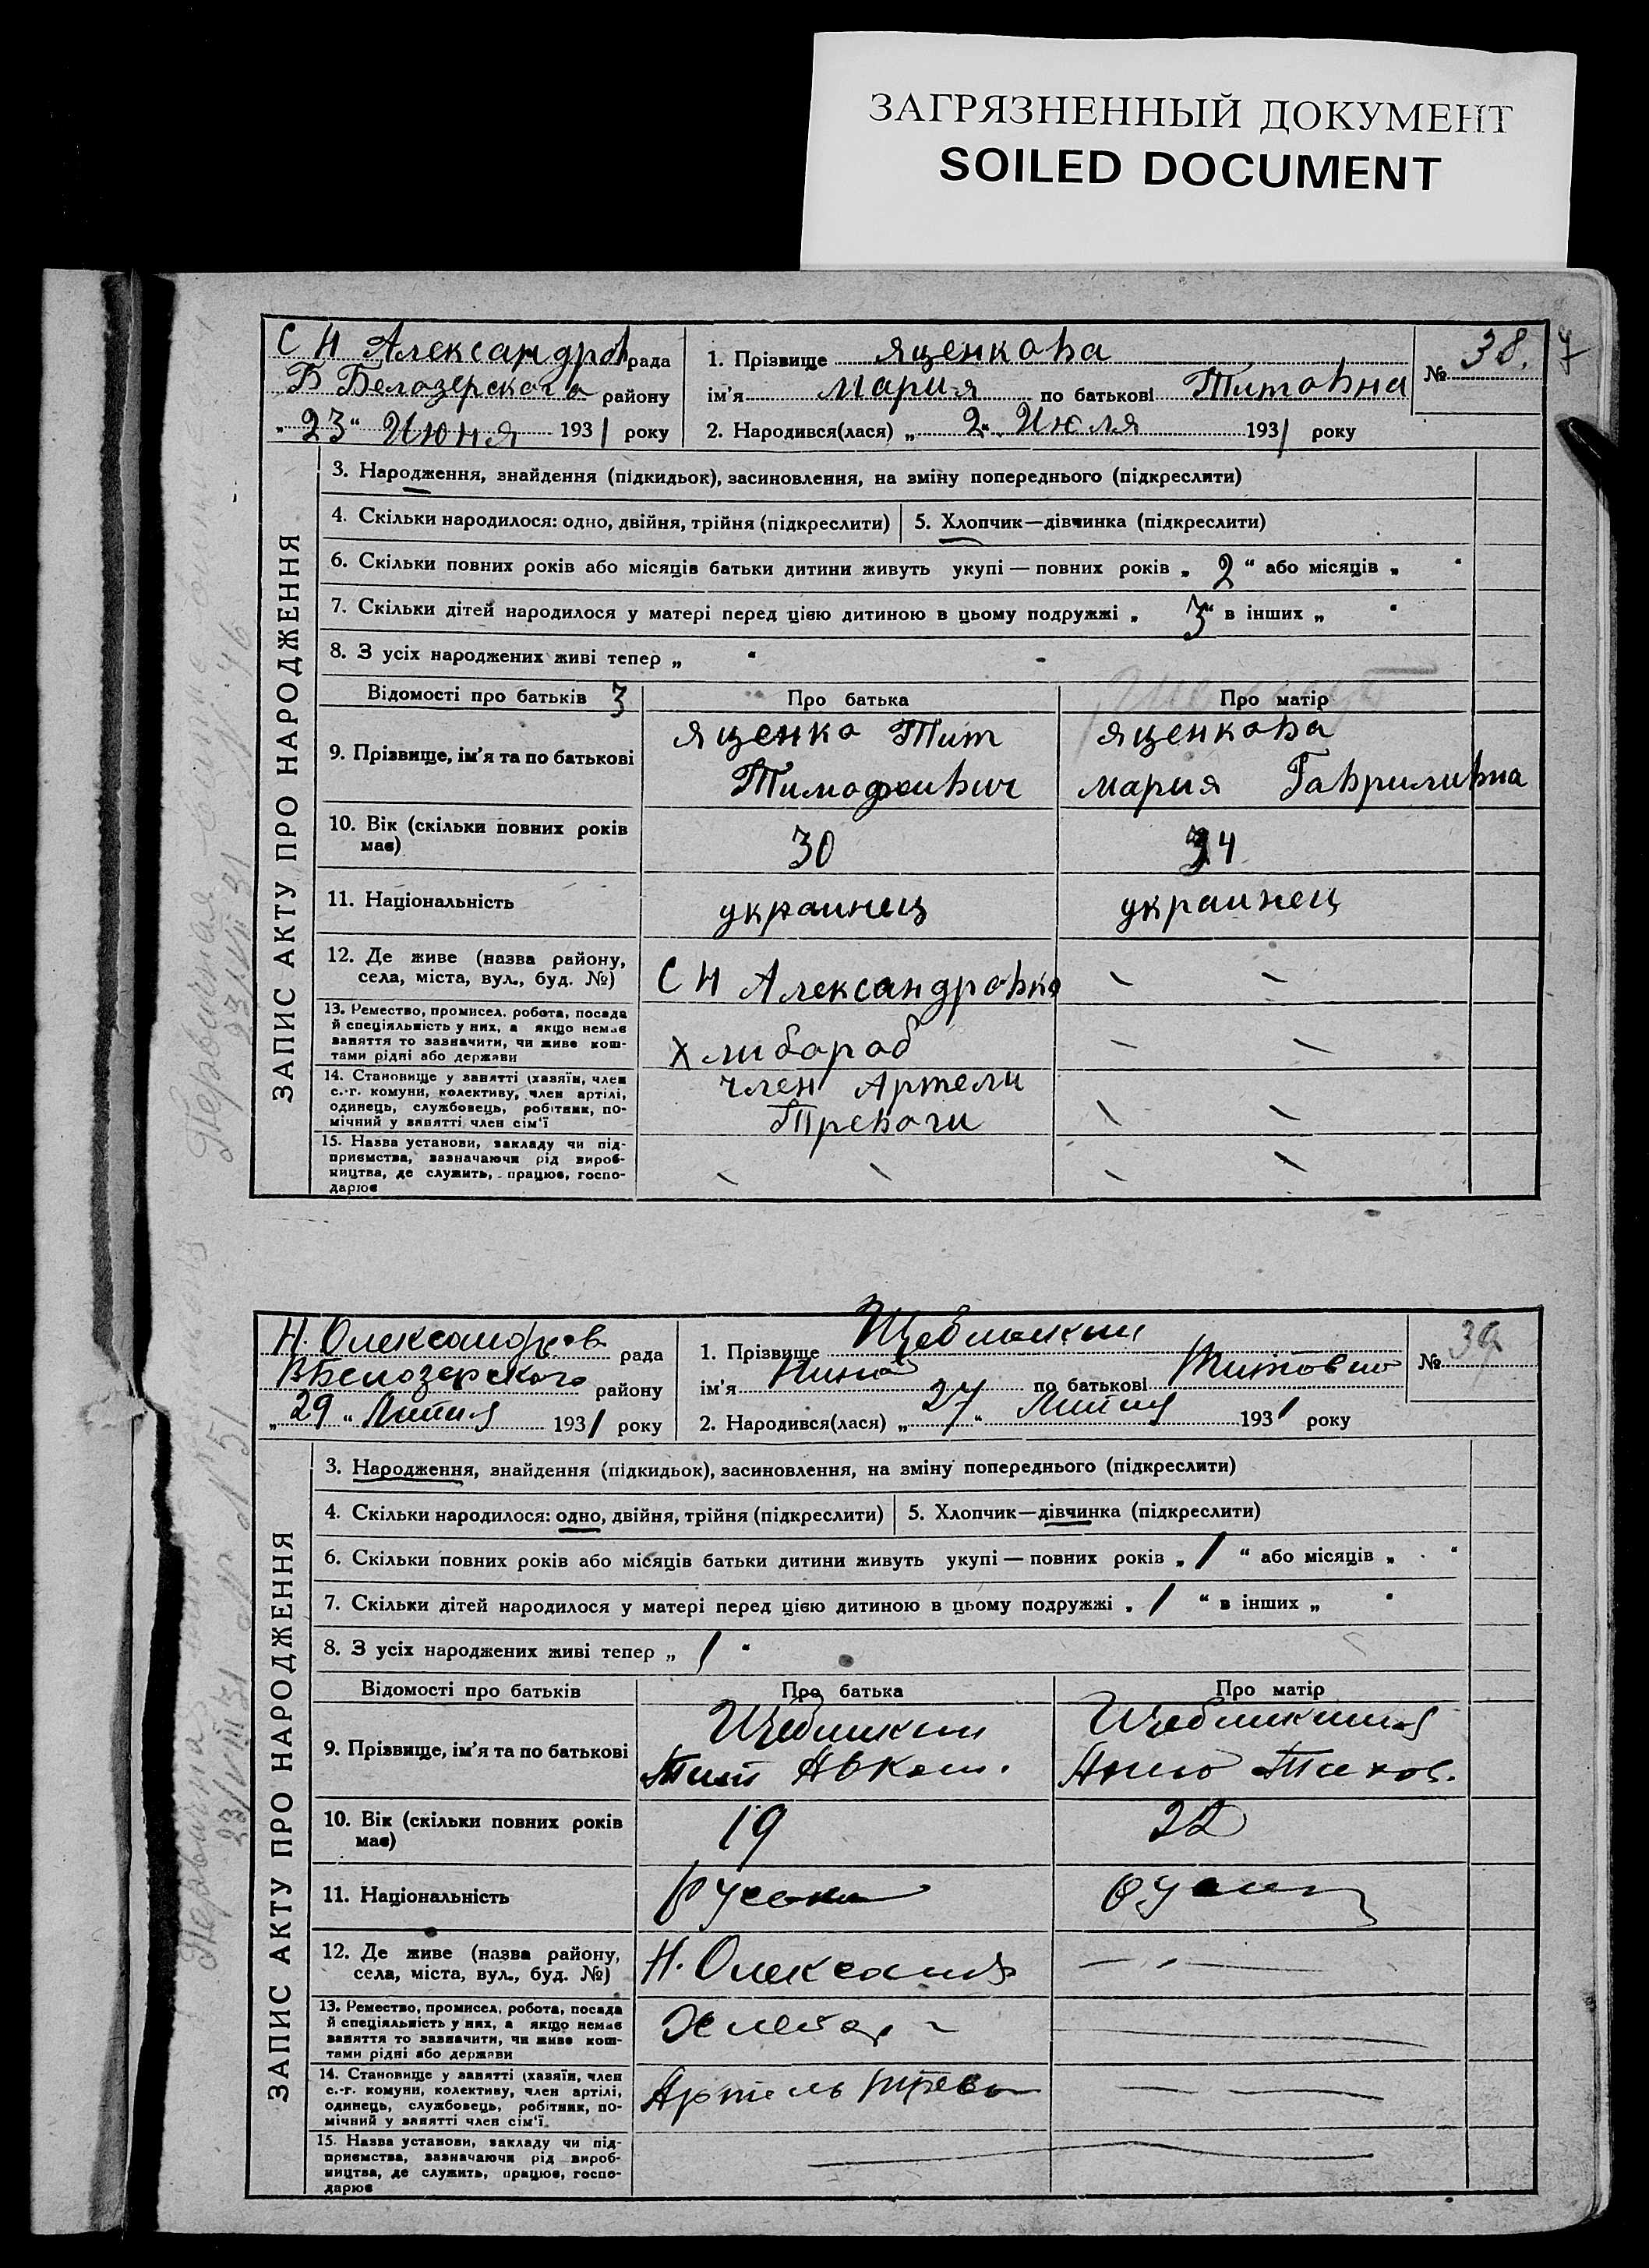 ЗАГРЯЗНЕННЫЙ ДОКУМЕНТ
SOILED DOCUMENT
С Н Александров рада
Б Белозерского району
„ 23 “ Июня 1931 року
1. Прізвище Яценкова
ім’я Мария по батькові Титовна
2. Народився(лася) „ 2 “ Июля 1931 року
№ 38.
7
ЗАПИС АКТУ ПРО НАРОДЖЕННЯ
3. Народження, знайдення (підкидьок), засиновлення, на зміну попереднього (підкреслити)
4. Скільки народилося: одно, двійня, трійня (підкреслити)
5. Хлопчик—дівчинка (підкреслити)
6. Скільки повних років або місяців батьки дитини живуть укупі — повних років „ 2 “ або місяців „ “
7. Скільки дітей народилося у матері перед цією дитиною в цьому подружжі „ 3 “ в інших „ “
8. З усіх народжених живі тепер „ “
Відомості про батьків 3
Про батька
Про матір
9. Прізвище, ім’я та по батькові
Яценко Тит
Тимофеивич
Яценкова
Мария Гавриливна
10. Вік (скільки повних років
має)
30
34
11. Національність
украинец
украинец
12. Де живе (назва району,
села, міста, вул., буд. №)
С Н Александровка
13. Ремество, промисел, робота, посада
й спеціяльність у них, а якщо немає
заняття то зазначити, чи живе кош-
тами рідні або держави
Хлибороб
14. Становище у занятті (хазяїн, член
с.-г. комуни, колективу, член артілі,
одинець, службовець, робітник, по-
мічний у занятті член сім’ї
член Артели
15. Назва установи, закладу чи під-
приємства, зазначаючи рід вироб-
ництва, де служить, працює, госпо-
дарює
Н. Олександров рада
ВБелозерского району
„ 29 “ Липня 1931 року
1. Прізвище Щебликин
ім’я Нина по батькові
2. Народився(лася) „ 27 “ Липня 1931 року
№ 39
ЗАПИС АКТУ ПРО НАРОДЖЕННЯ
3. Народження, знайдення (підкидьок), засиновлення, на зміну попереднього (підкреслити)
4. Скільки народилося: одно, двійня, трійня (підкреслити)
5. Хлопчик—дівчинка (підкреслити)
6. Скільки повних років або місяців батьки дитини живуть укупі — повних років „ 1 “ або місяців „ “
7. Скільки дітей народилося у матері перед цією дитиною в цьому подружжі „ 1 “ в інших „ “
8. З усіх народжених живі тепер „ 1 “
Відомості про батьків
Про батька
Про матір
9. Прізвище, ім’я та по батькові
Щебликин
Тит
Щебликина
10. Вік (скільки повних років
має)
19
22
11. Національність
12. Де живе (назва району,
села, міста, вул., буд. №)
Н. Олександ
13. Ремество, промисел, робота, посада
й спеціяльність у них, а якщо немає
заняття то зазначити, чи живе кош-
тами рідні або держави
14. Становище у занятті (хазяїн, член
с.-г. комуни, колективу, член артілі,
одинець, службовець, робітник, по-
мічний у занятті член сім’ї
Артель
15. Назва установи, закладу чи під-
приємства, зазначаючи рід вироб-
ництва, де служить, працює, госпо-
дарює